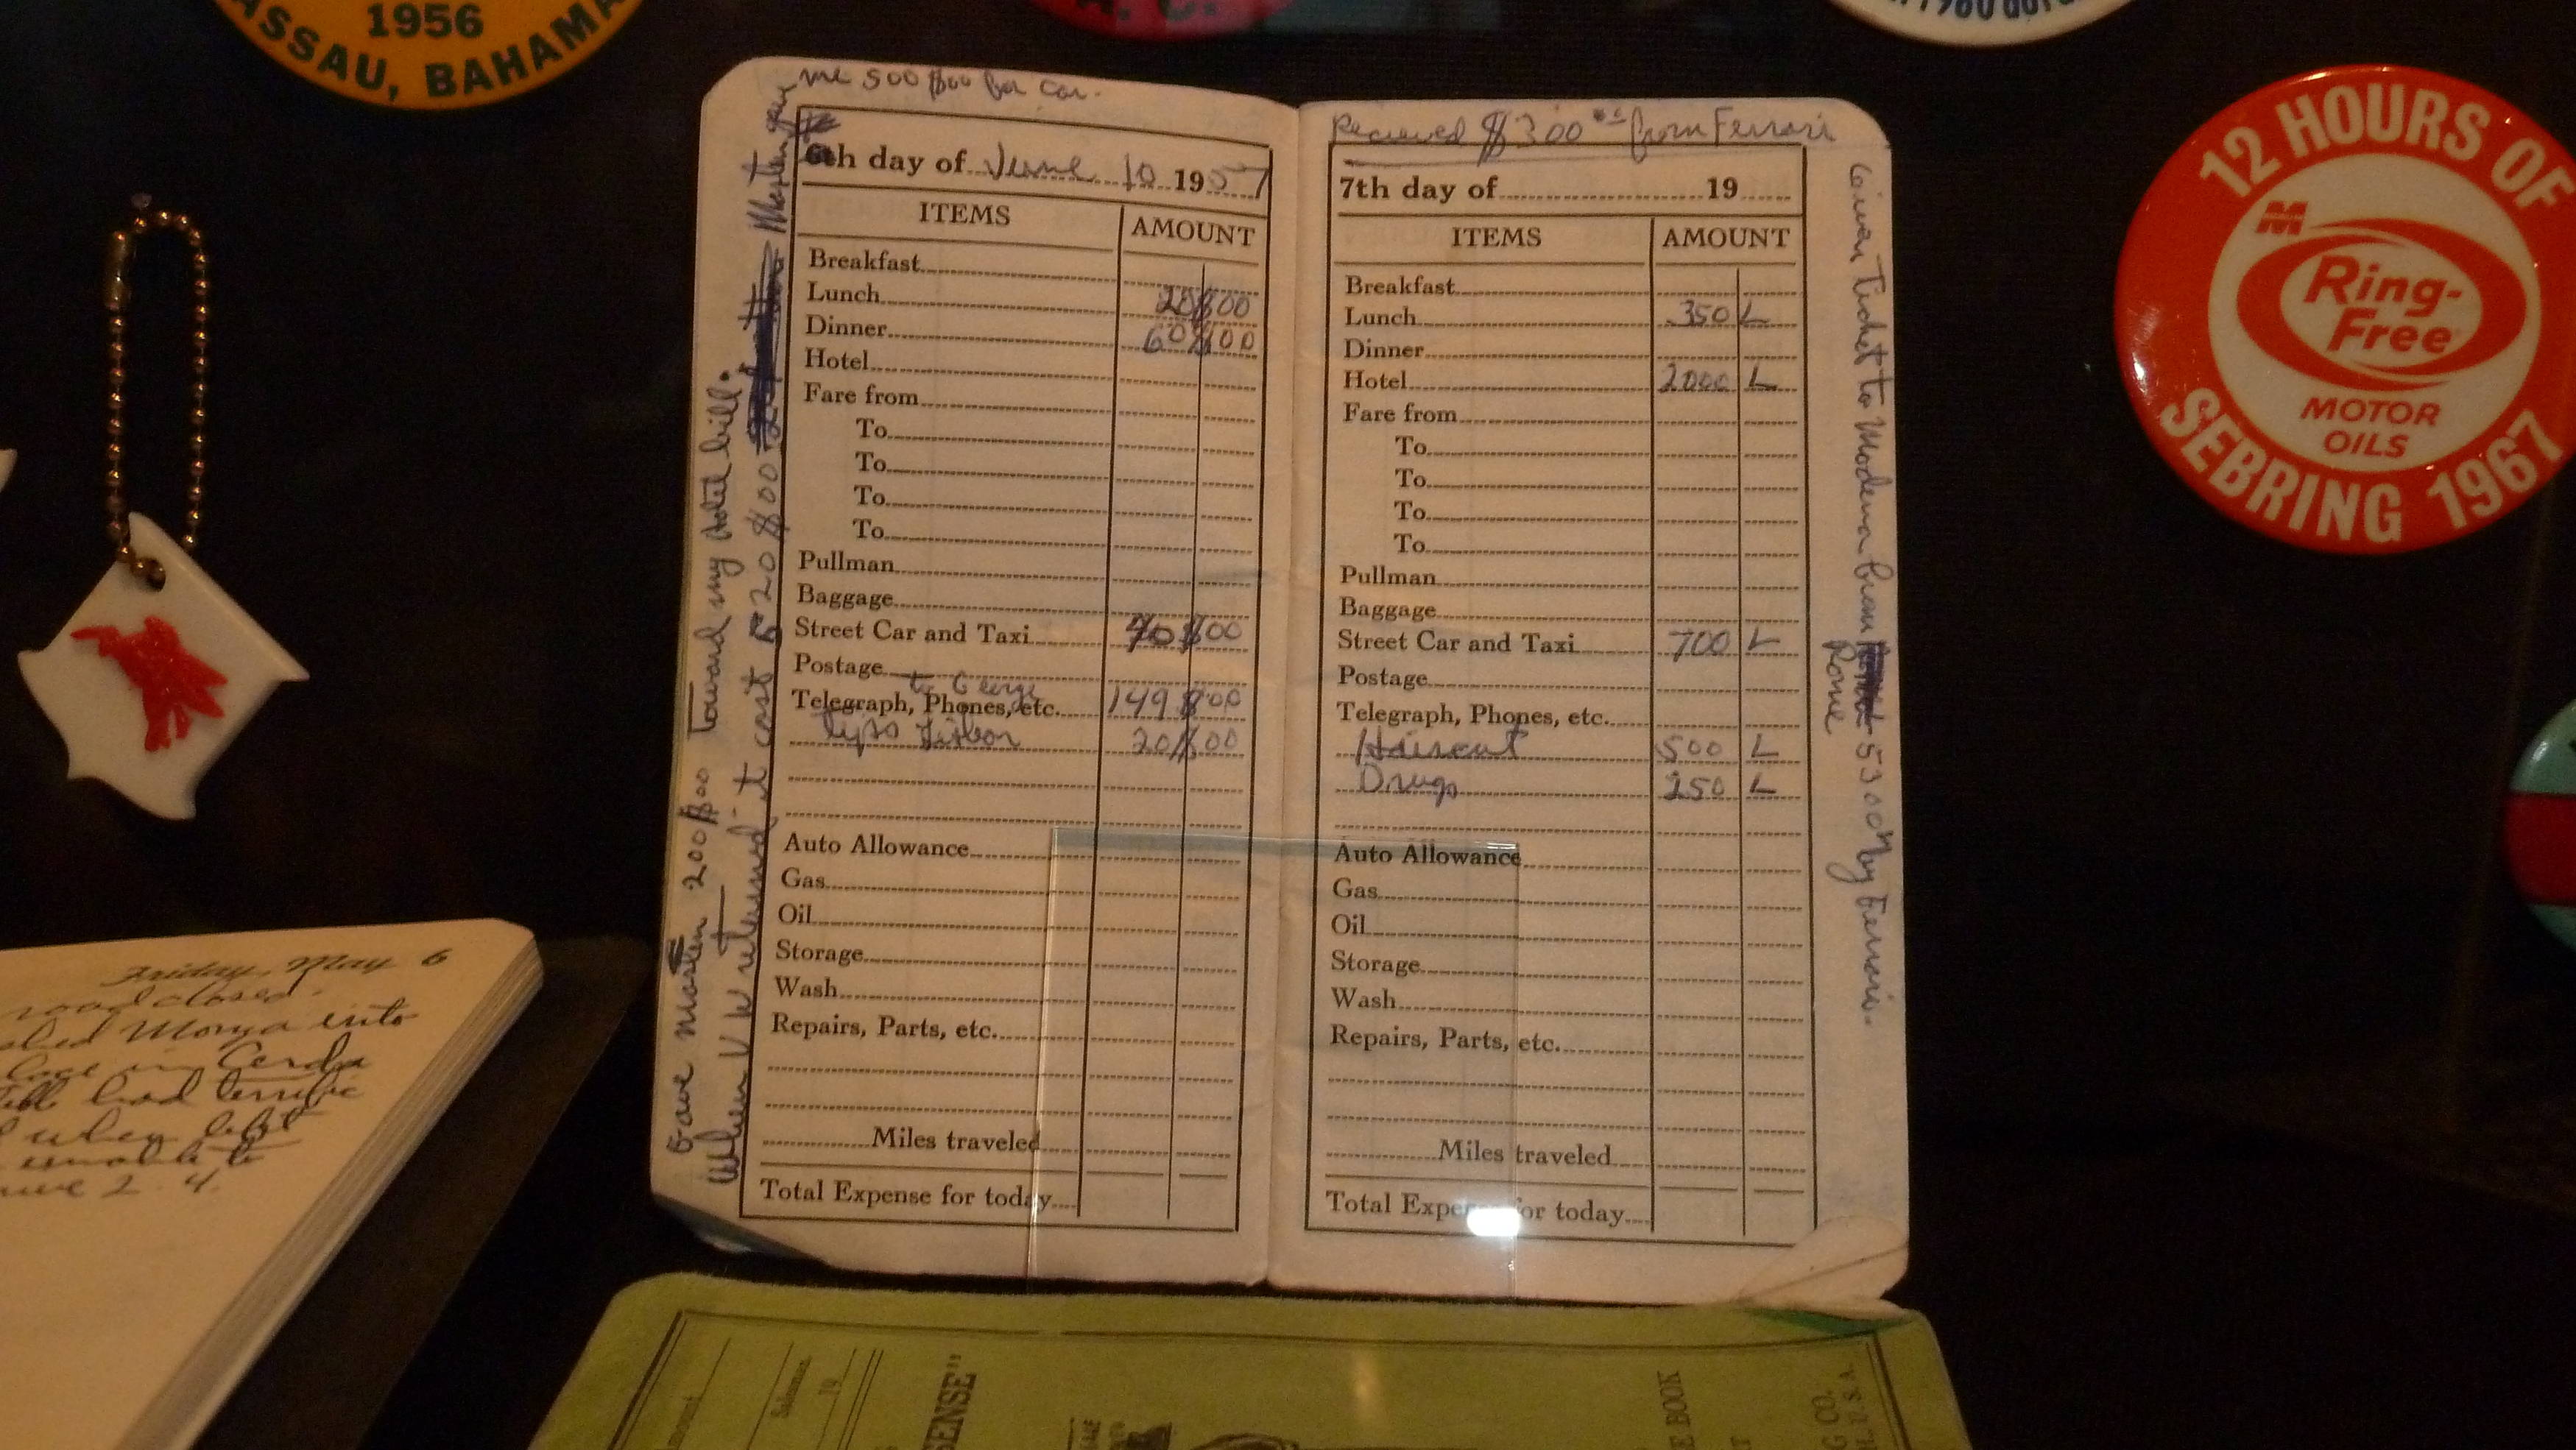 1956
NASSAU, BAHAMA
1960
12 HOURS OF
M
Ring-
Free
MOTOR
OILS
SEBRING 1967
me 500$00 for car.
6th day of June 10 1957
ITEMS AMOUNT
Breakfast
Lunch 20$00
Dinner 60$00
Hotel
Fare from
To
To
To
To
Pullman
Baggage
Street Car and Taxi 70$00
Postage
to George
Telegraph, Phones, etc. 149$00
tips Lisbon 20$00
Auto Allowance
Gas
Oil
Storage
Wash
Repairs, Parts, etc.
Miles traveled
Total Expense for today
Gave Masten 200$00 toward my hotel bill.
When VW returned it cost 520$00 Masten gave
Recieved $300 from Ferrari
7th day of 19
ITEMS AMOUNT
Breakfast
Lunch 350 L
Dinner
Hotel 2000 L
Fare from
To
To
To
To
Pullman
Baggage
Street Car and Taxi 700 L
Postage
Telegraph, Phones, etc.
Haircut 500 L
Drugs 250 L
Auto Allowance
Gas
Oil
Storage
Wash
Repairs, Parts, etc.
Miles traveled
Total Expense for today
Given Ticket to Modena from
Rome 5300 by Ferrari.
Friday, May 6
road closed.
Monza into
in Cerda
had terrific
when left
unable to
2.4.
Balance 19
ENSE"
BOOK
CO.
U.S.A.